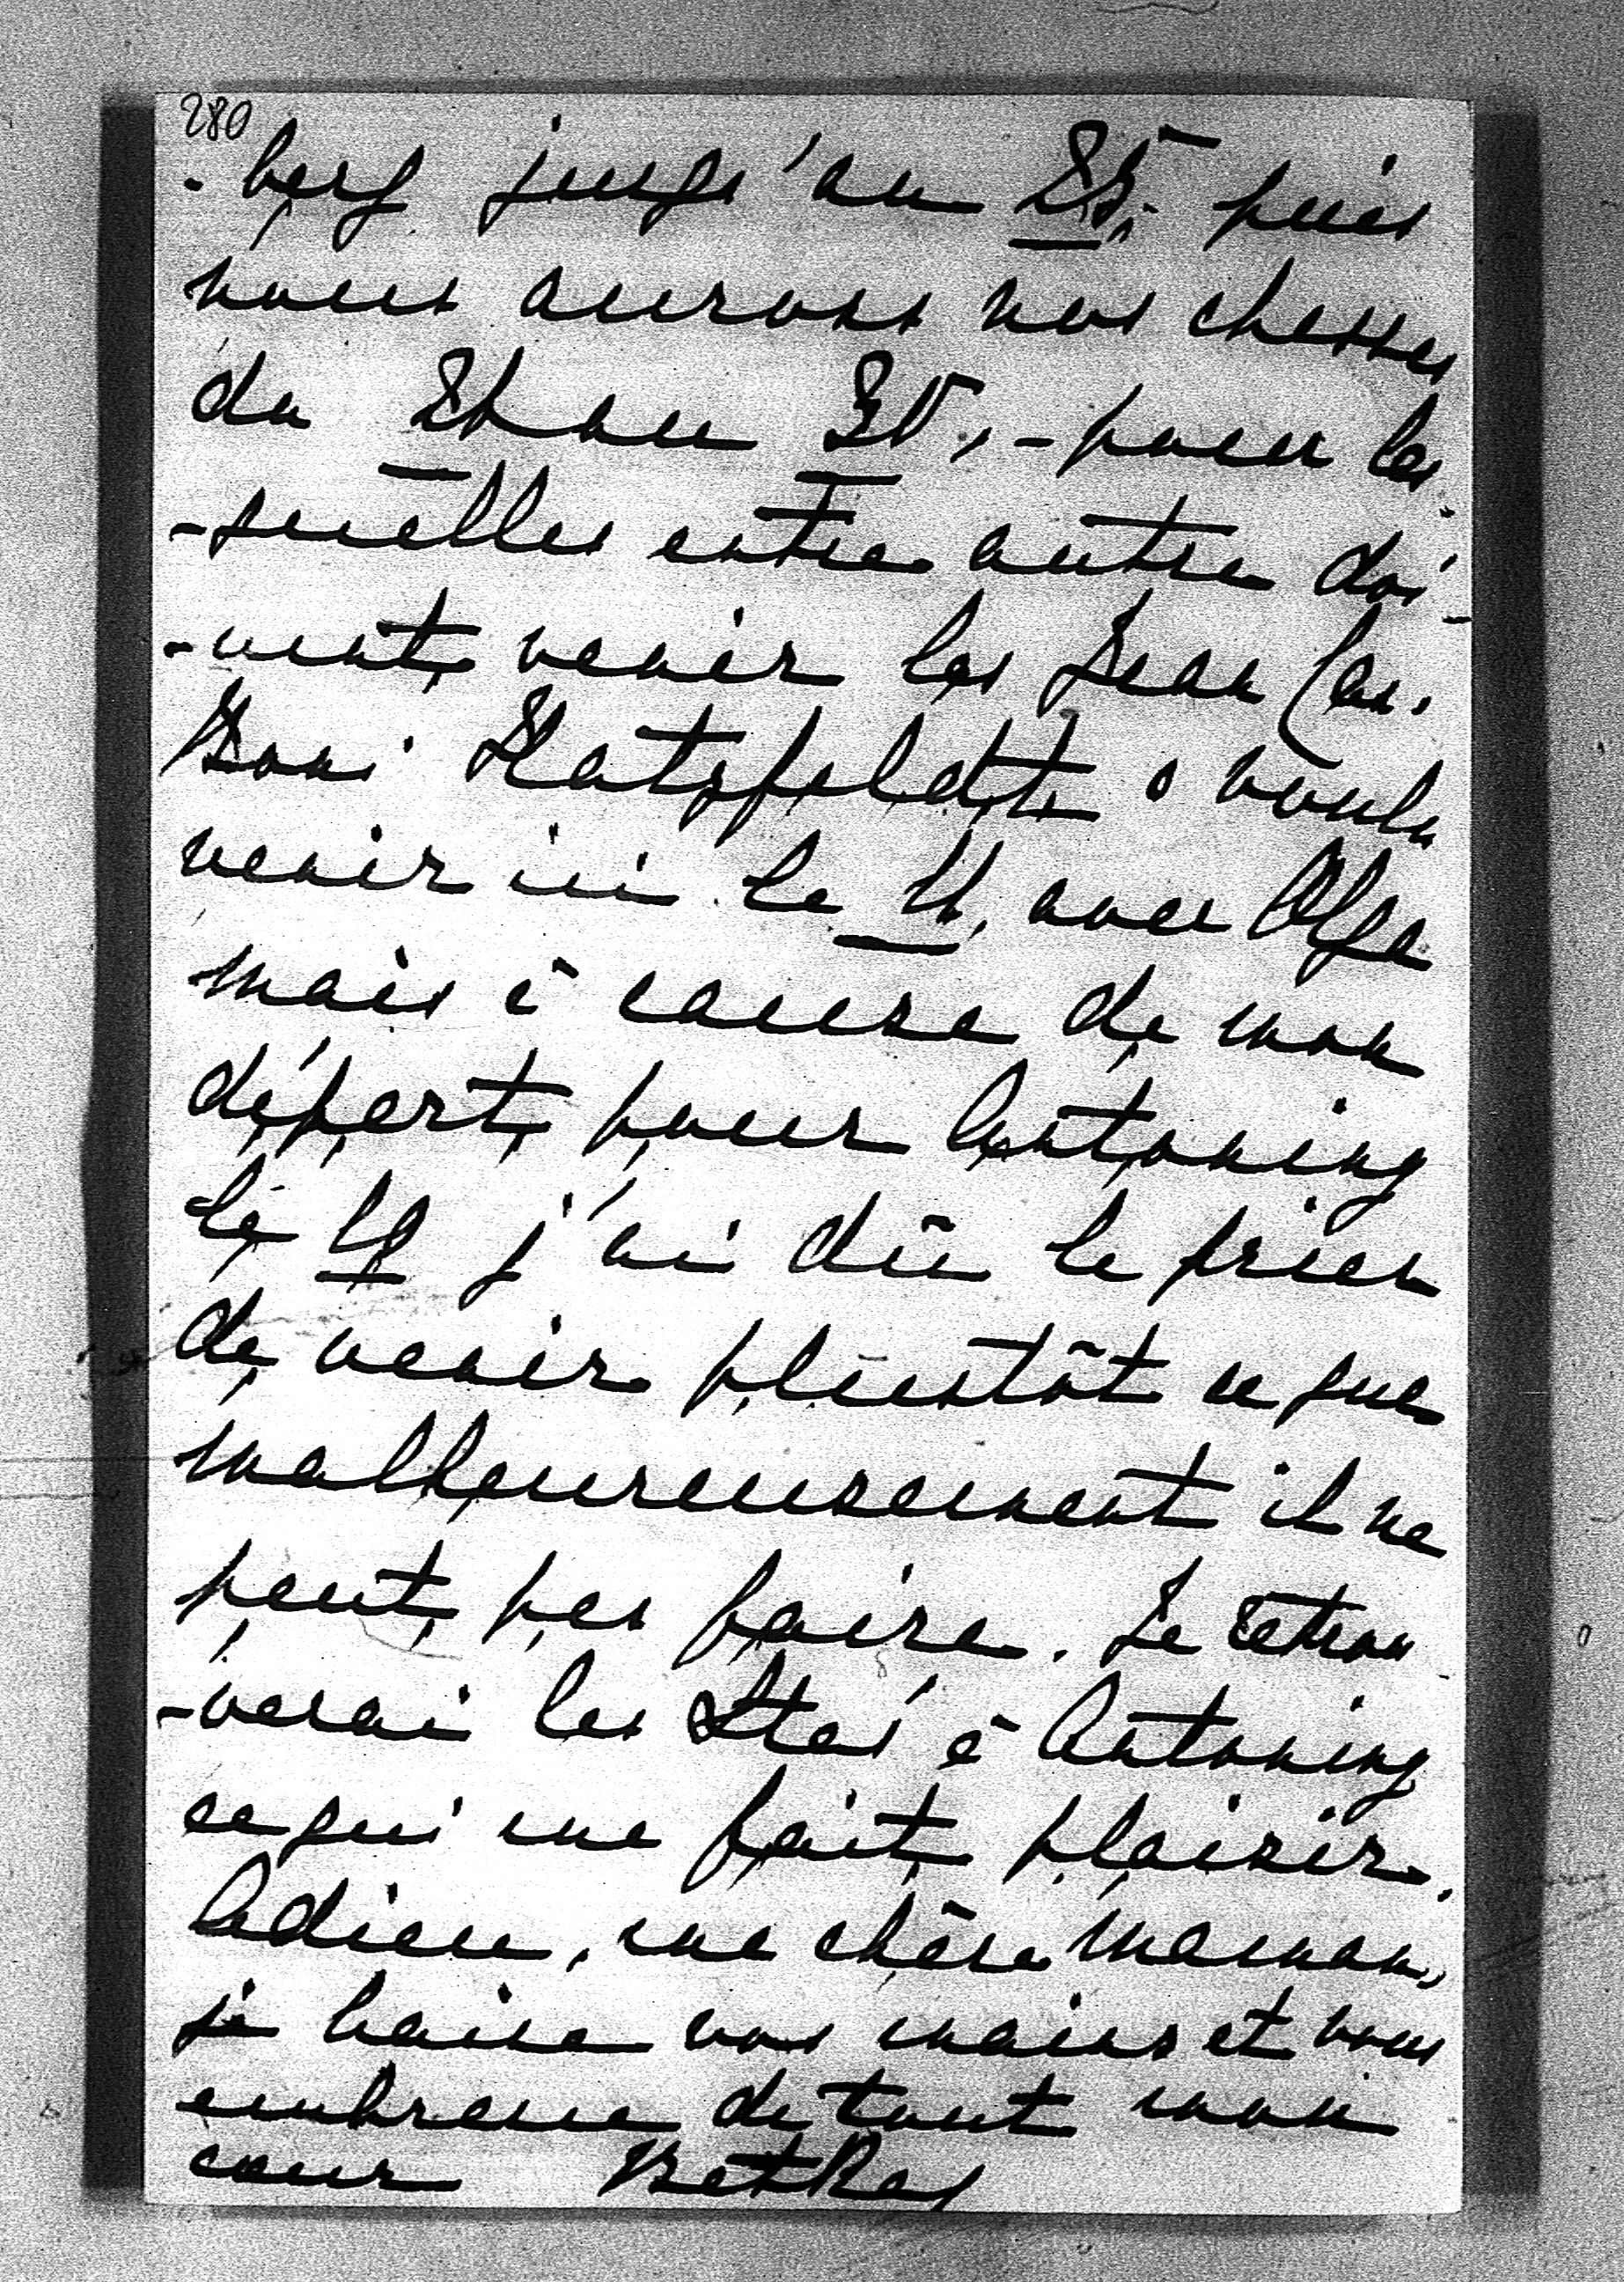 280
-berg jusqu'au 25, puis
nous aurons nos chasses
du au 30, - pour les-
-quelles entre autre doi-
-vent venir les Jean
Boni Hatzfeldt a voulu
venir ici le 11, avec Olga
mais à cause de mon
départ pour Antoniny
le j'ai dû le prier
de venir plustôt ce que
malheureusement il ne
peut pas faire. Je retrou
-verai les à Antoniny
ce qui me fait plaisir.
Adieu, ma chère Maman,
je baise vos mains et vous
embrasse de tout mon
cœur BetKa